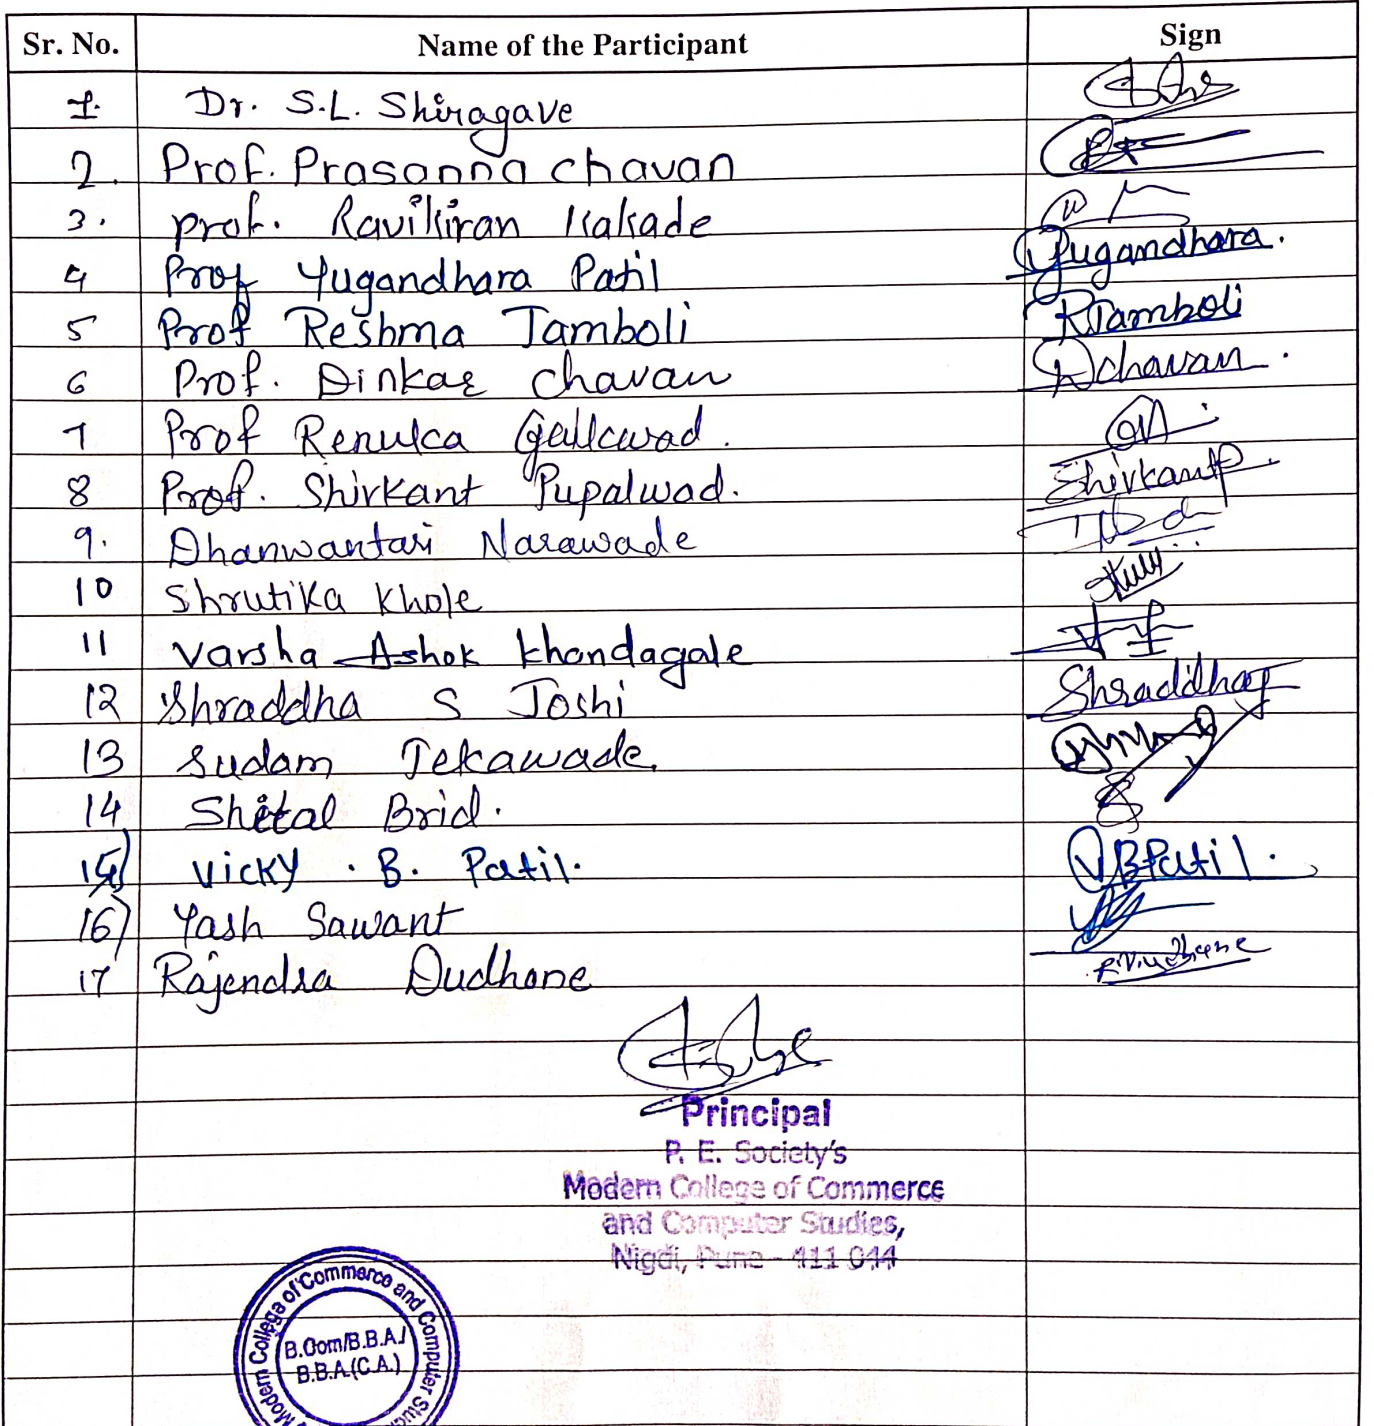 Sr. No. Name of the Participant Sign
1. Dr. S.L. Shiragave
2. Prof. Prasanna Chavan
3. Prof. Ravikiran Kakade
4 Prof Yugandhara Patil Yugandhara.
5 Prof Reshma Tamboli RTamboli
6 Prof. Dinkar Chavan Dchavan.
7 Prof Renuka Gaikwad.
8 Prof. Shirkant Pupalwad. ShirkantP.
9. Dhanwantari Narawade
10 Shrutika Khole
11 Varsha Ashok Khondagale
12 Shraddha S Joshi ShraddhaJ
13 Sudam Tekawade.
14 Shital Brid.
15) Vicky . B. Patil. VBPatil.
16) Yash Sawant
17 Rajendra Dudhane
Principal
P. E. Society's
Modern College of Commerce
and Computer Studies,
Nigdi, Pune - 411 044
Modern College of Commerce and Computer
B.Com/B.B.A./
B.B.A.(C.A.)